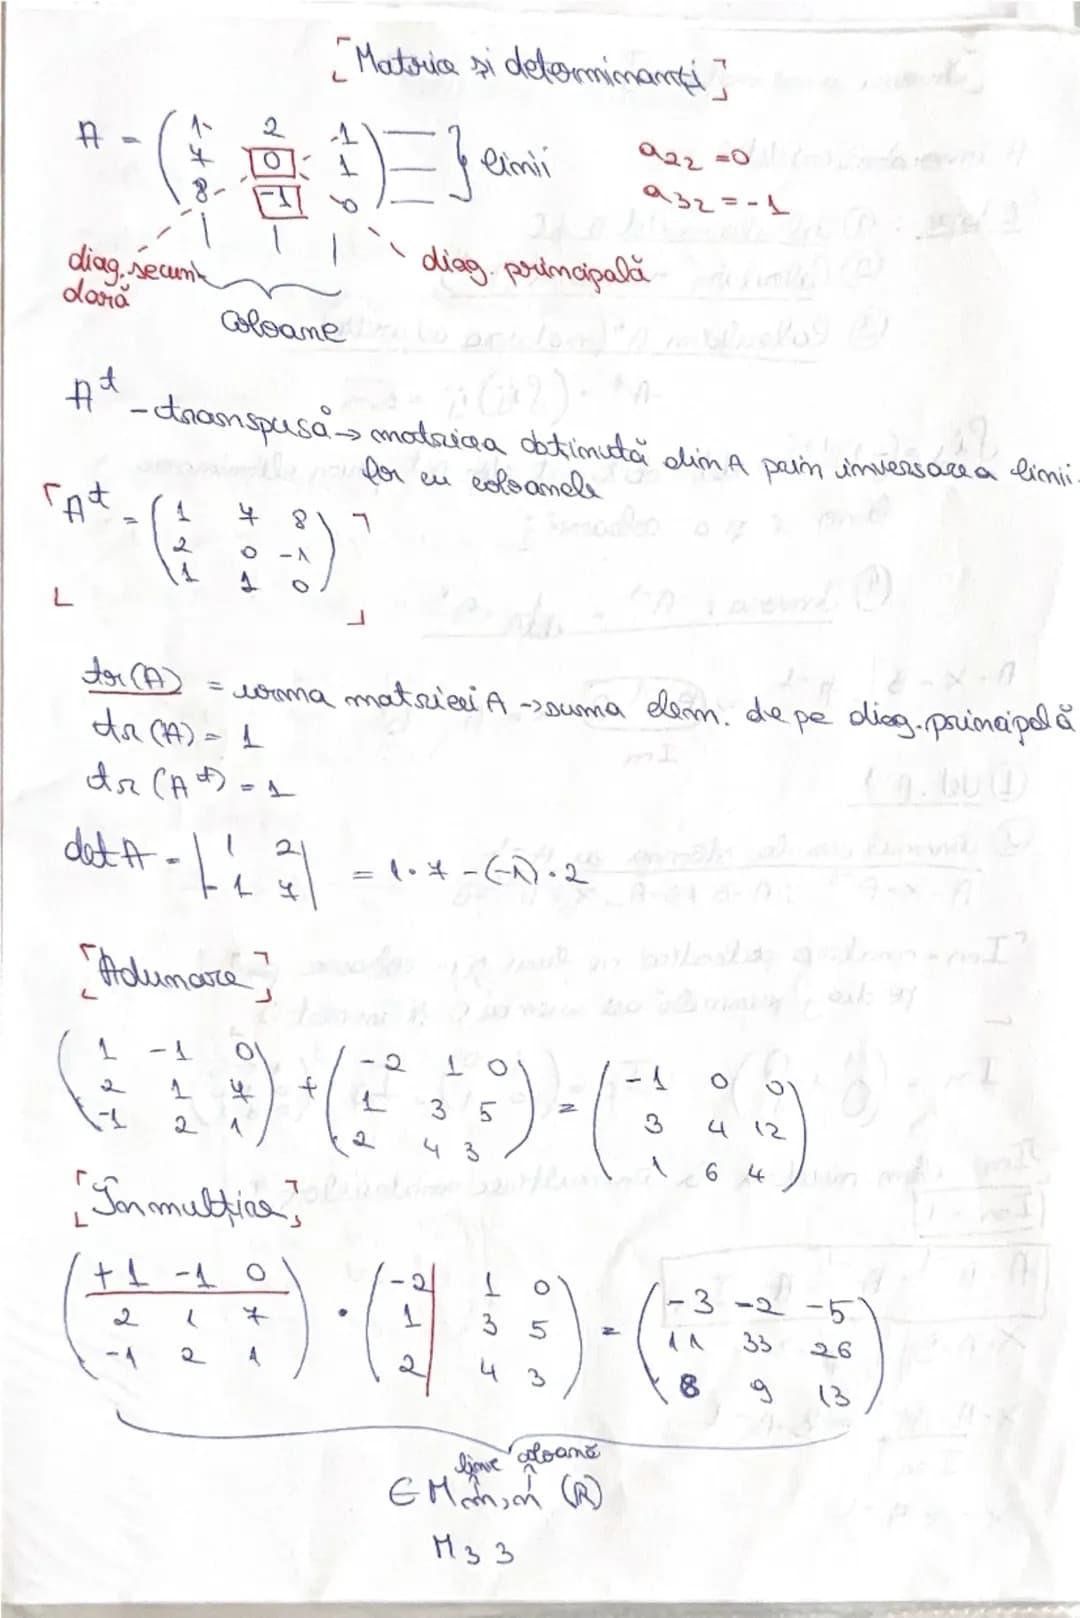 Matrice și determinanți
A = ( 1 2 -1 ) } linii a22 = 0
7 0 1 a32 = -1
8 -1 0
diag. secundară diag. principală
coloane
A^t - transpusă → matricea obținută din A prin inversarea liniilor cu coloanele
A^t = ( 1 7 8 )
2 0 -1
1 1 0
tr(A) = urma matricei A -> suma elem. de pe diag. principală
tr(A) = 1
tr(A^t) = 1
det A = | 1 2 | = 1·7 - (-1)·2
-1 7
Adunare
( 1 -1 0 ) + ( -2 1 0 ) = ( -1 0 0 )
2 1 7 1 3 5 3 4 12
-1 2 1 2 4 3 1 6 4
Înmulțire
( +1 -1 0 ) · ( -2 1 0 ) = ( -3 -2 -5 )
2 1 7 1 3 5 11 33 26
-1 2 1 2 4 3 8 9 13
linie coloană
∈ M m,n (R)
M 3 3